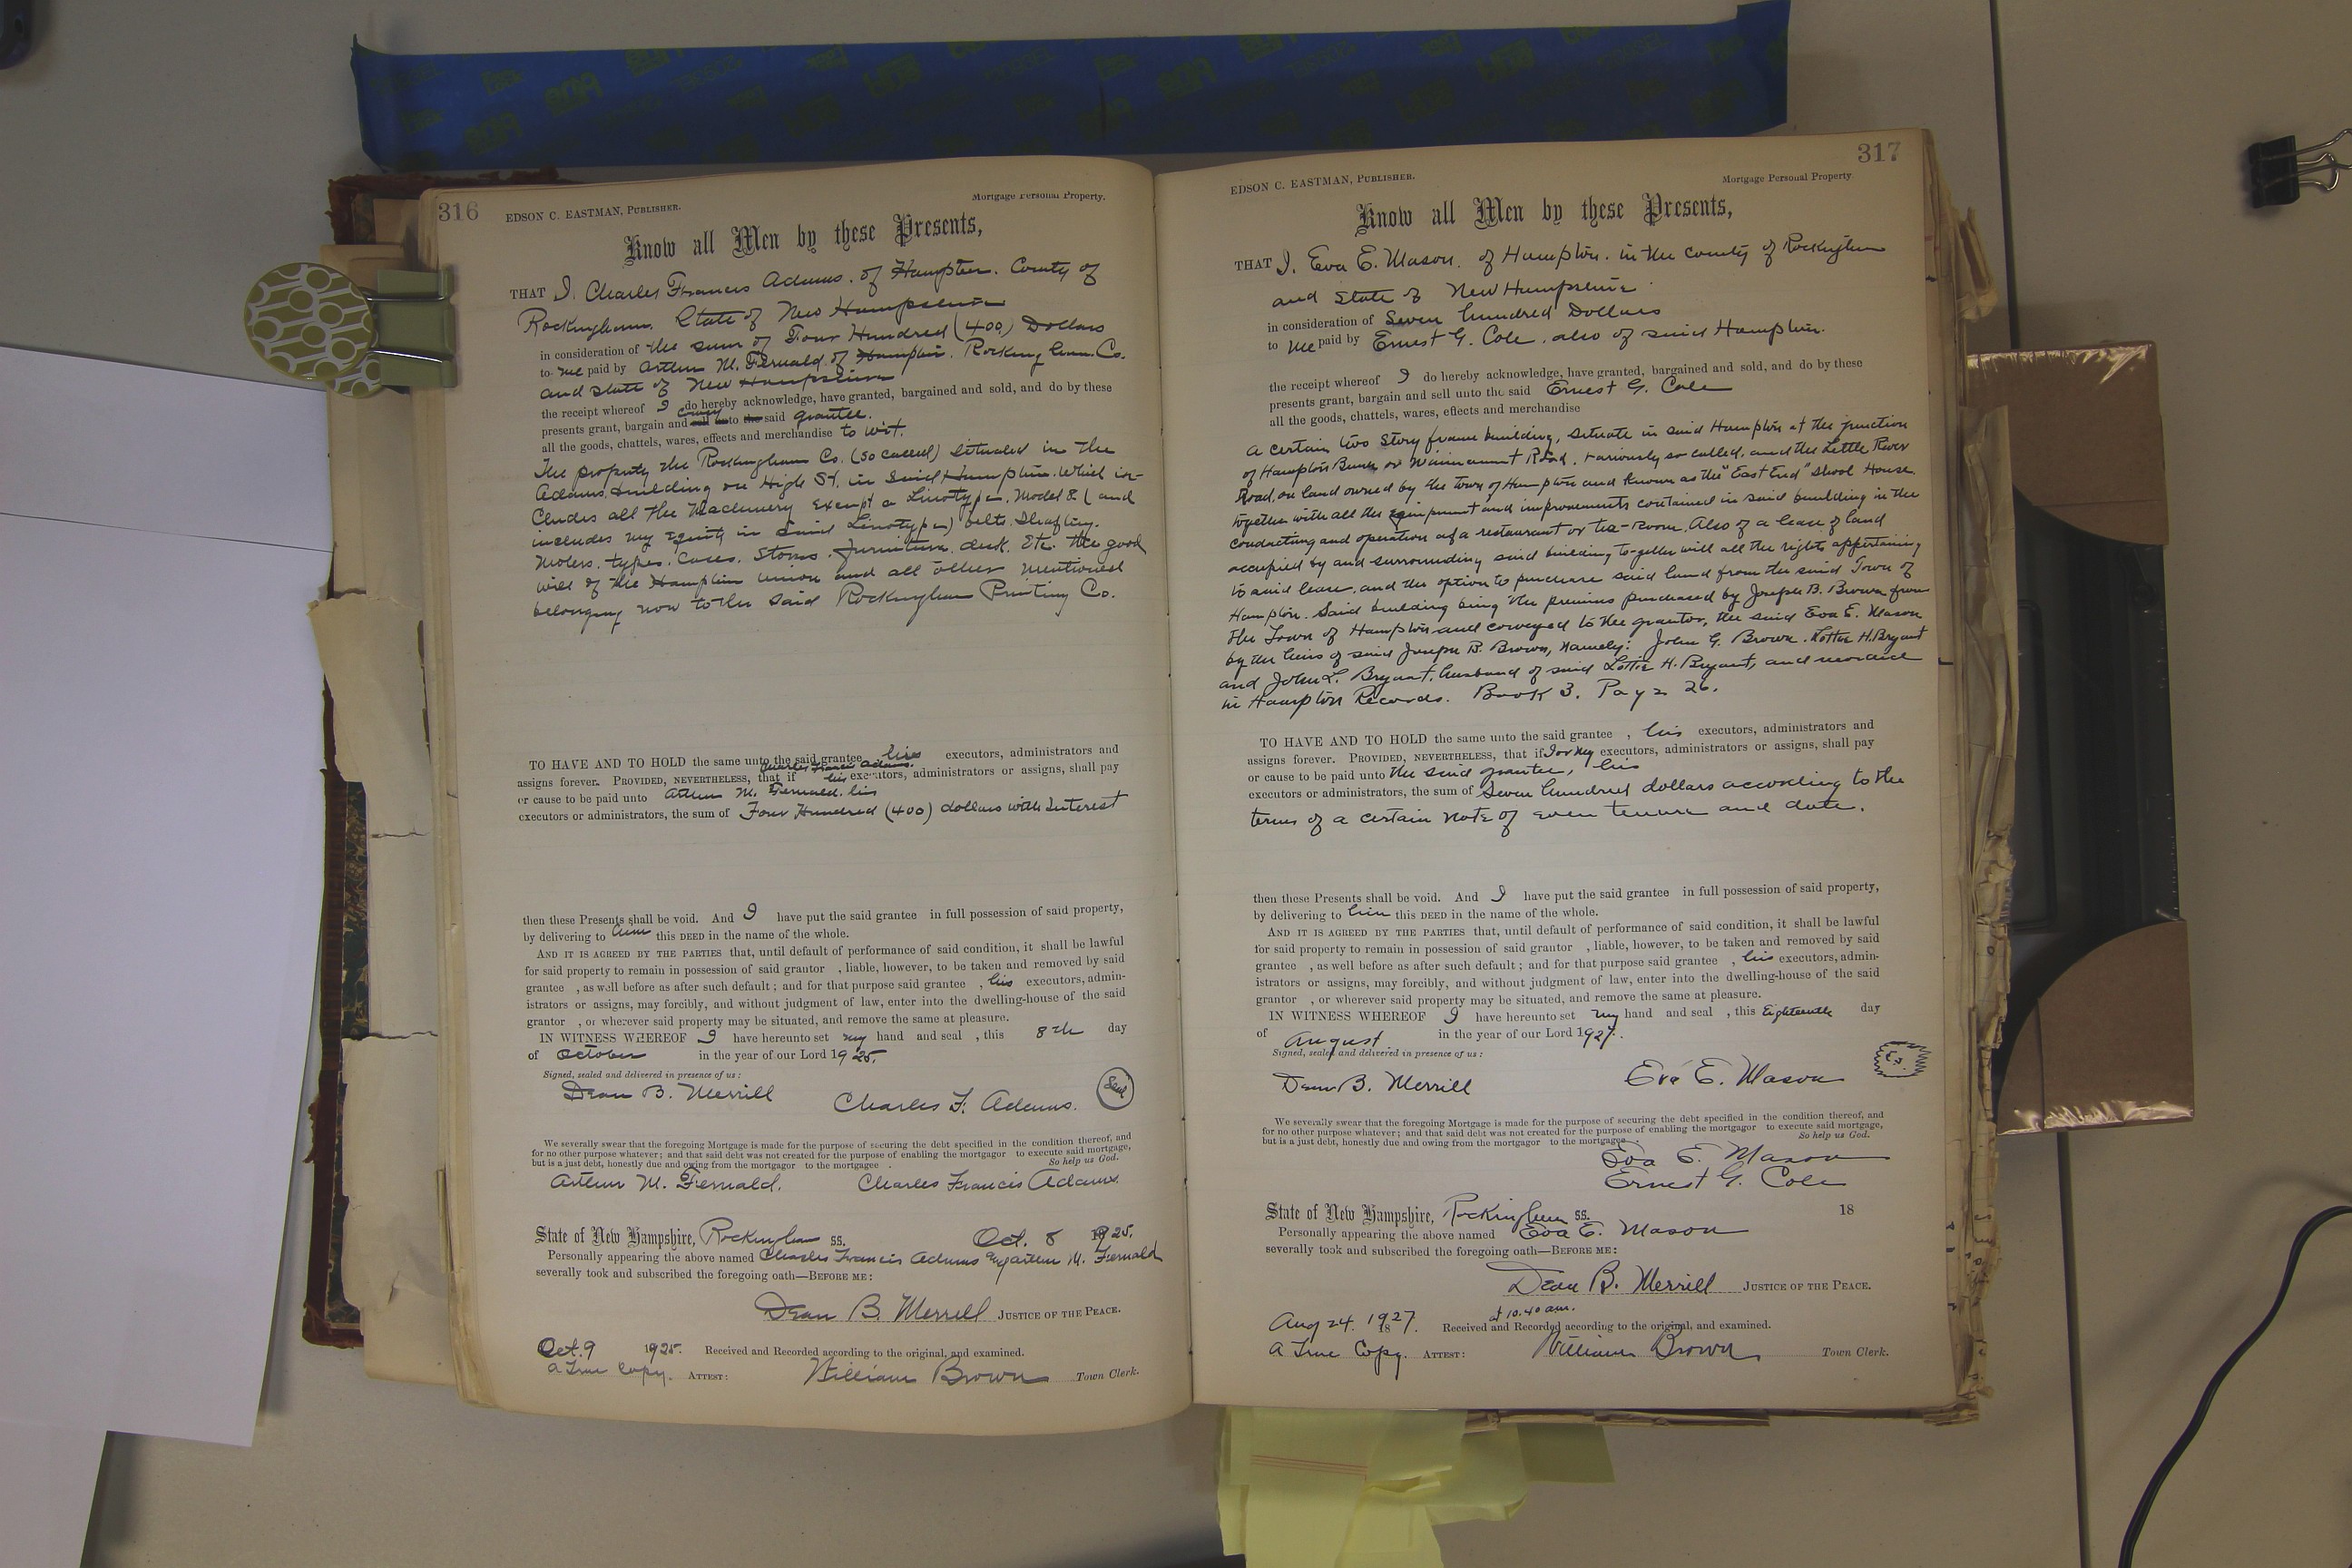 316
EDSON C. EASTMAN, PUBLISHER.
Mortgage Personal Property.
Know all Men by these Presents,
THAT I. Charles Francis Adams. of Hampton. County of
Rockingham. State of New Hampshire
in consideration of the sum of Four Hundred (400) Dollars
to me paid by Arthur M. Fernald. of Hampton. Rockingham. Co.
and State of New Hampshire
the receipt whereof I do hereby acknowledge, have granted, bargained and sold, and do by these
presents grant, bargain and convey sell unto the said grantee.
all the goods, chattels, wares, effects and merchandise to wit.
The property the Rockingham Co. (so called) situated in the
Adams building on High St. in said Hampton. Which in-
cludes all the Machinery except a Linotype, Model 8 (and
includes my Equity in Said Linotype) belts. Shafting.
Motors. types. Cases. Stones. furniture. desk. Etc. the good
will of the Hampton Union and all other mentioned
belonging now to the said Rockingham Printing Co.
TO HAVE AND TO HOLD the same unto the said grantee his executors, administrators and
assigns forever. PROVIDED, NEVERTHELESS, that if Charles Francis Adams. his executors, administrators or assigns, shall pay
or cause to be paid unto Arthur M. Fernald. his
executors or administrators, the sum of Four Hundred (400) dollars with Interest
then these Presents shall be void. And I have put the said grantee in full possession of said property,
by delivering to him this DEED in the name of the whole.
AND IT IS AGREED BY THE PARTIES that, until default of performance of said condition, it shall be lawful
for said property to remain in possession of said grantor , liable, however, to be taken and removed by said
grantee , as well before as after such default ; and for that purpose said grantee , his executors, admin-
istrators or assigns, may forcibly, and without judgment of law, enter into the dwelling-house of the said
grantor , or wherever said property may be situated, and remove the same at pleasure.
IN WITNESS WHEREOF I have hereunto set my hand and seal , this 8th day
of October in the year of our Lord 1925.
Signed, sealed and delivered in presence of us :
Dean B. Merrill
Charles F. Adams. Seal
We severally swear that the foregoing Mortgage is made for the purpose of securing the debt specified in the condition thereof, and
for no other purpose whatever ; and that said debt was not created for the purpose of enabling the mortgagor to execute said mortgage,
but is a just debt, honestly due and owing from the mortgagor to the mortgagee . So help us God.
Arthur M. Fernald. Charles Francis Adams.
State of New Hampshire, Rockingham SS. Oct. 8 1925.
Personally appearing the above named Charles Francis Adams and Arthur M. Fernald
severally took and subscribed the foregoing oath—BEFORE ME :
Dean B. Merrill JUSTICE OF THE PEACE.
Oct. 9 1925. Received and Recorded according to the original, and examined.
A True Copy. ATTEST : William Brown Town Clerk.
317
EDSON C. EASTMAN, PUBLISHER.
Mortgage Personal Property
Know all Men by these Presents,
THAT I. Eva E. Mason. of Hampton. in the county of Rockingham
and State of New Hampshire
in consideration of Seven hundred Dollars
to me paid by Ernest G. Cole. also of said Hampton.
the receipt whereof I do hereby acknowledge, have granted, bargained and sold, and do by these
presents grant, bargain and sell unto the said Ernest G. Cole
all the goods, chattels, wares, effects and merchandise
A certain two story frame building, situate in said Hampton at the junction
of Hampton Beach or Road, variously so called, and the Little River
Road, on land owned by the town of Hampton and known as the "East End" School House
together with all the equipment and improvements contained in said building in the
conducting and operation of a restaurant or tea-Room. Also of a lease of land
occupied by and surrounding said building together with all the rights appertaining
to said lease, and the option to purchase said land from the said Town of
Hampton. Said building being the premises purchased by Joseph B. Brown from
the Town of Hampton and conveyed to the grantor, the said Eva E. Mason
by the heirs of said Joseph B. Brown, Namely: John G. Brown. Lottie H. Bryant
and John L. Bryant, husband of said Lottie H. Bryant, and recorded
in Hampton Records. Book 3. Page 26.
TO HAVE AND TO HOLD the same unto the said grantee , his executors, administrators and
assigns forever. PROVIDED, NEVERTHELESS, that if I or my executors, administrators or assigns, shall pay
or cause to be paid unto the said grantee, his
executors or administrators, the sum of Seven hundred dollars according to the
terms of a certain note of even tenure and date.
then these Presents shall be void. And I have put the said grantee in full possession of said property,
by delivering to him this DEED in the name of the whole.
AND IT IS AGREED BY THE PARTIES that, until default of performance of said condition, it shall be lawful
for said property to remain in possession of said grantor , liable, however, to be taken and removed by said
grantee , as well before as after such default ; and for that purpose said grantee , his executors, admin-
istrators or assigns, may forcibly, and without judgment of law, enter into the dwelling-house of the said
grantor , or wherever said property may be situated, and remove the same at pleasure.
IN WITNESS WHEREOF I have hereunto set my hand and seal , this Eighteenth day
of August in the year of our Lord 1927.
Signed, sealed and delivered in presence of us :
Dean B. Merrill
Eva E. Mason
We severally swear that the foregoing Mortgage is made for the purpose of securing the debt specified in the condition thereof, and
for no other purpose whatever ; and that said debt was not created for the purpose of enabling the mortgagor to execute said mortgage,
but is a just debt, honestly due and owing from the mortgagor to the mortgagee . So help us God.
Eva E. Mason
Ernest G. Cole
State of New Hampshire, Rockingham SS. 18
Personally appearing the above named Eva E. Mason
severally took and subscribed the foregoing oath—BEFORE ME :
Dean B. Merrill JUSTICE OF THE PEACE.
Aug 24. 1927. at 10.40 am. Received and Recorded according to the original, and examined.
A True Copy. ATTEST : William Brown Town Clerk.